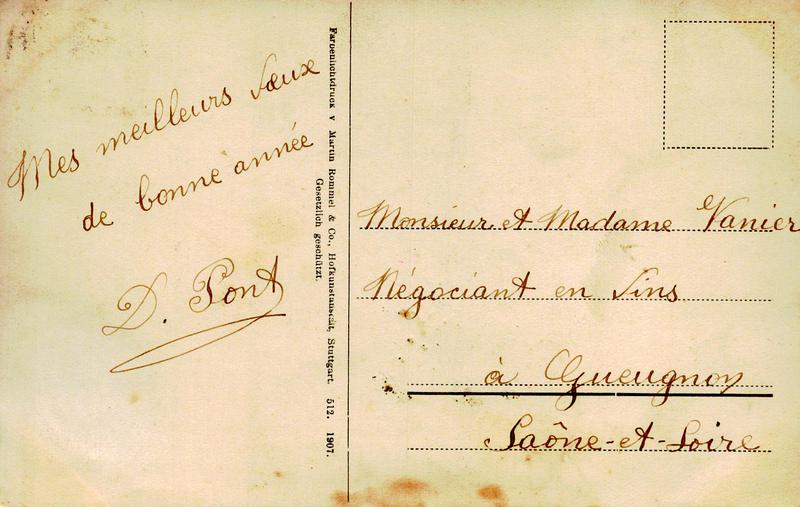 Mes meilleurs vœux
de bonne année
D. Pont
Farbenlichtdruck v Martin Rommel & Co., Hofkunstanstalt, Stuttgart. 512. 1907.
Gesetzlich geschützt.
Monsieur et Madame Vanier
Négociant en vins
à Gueugnon
Saône-et-Loire